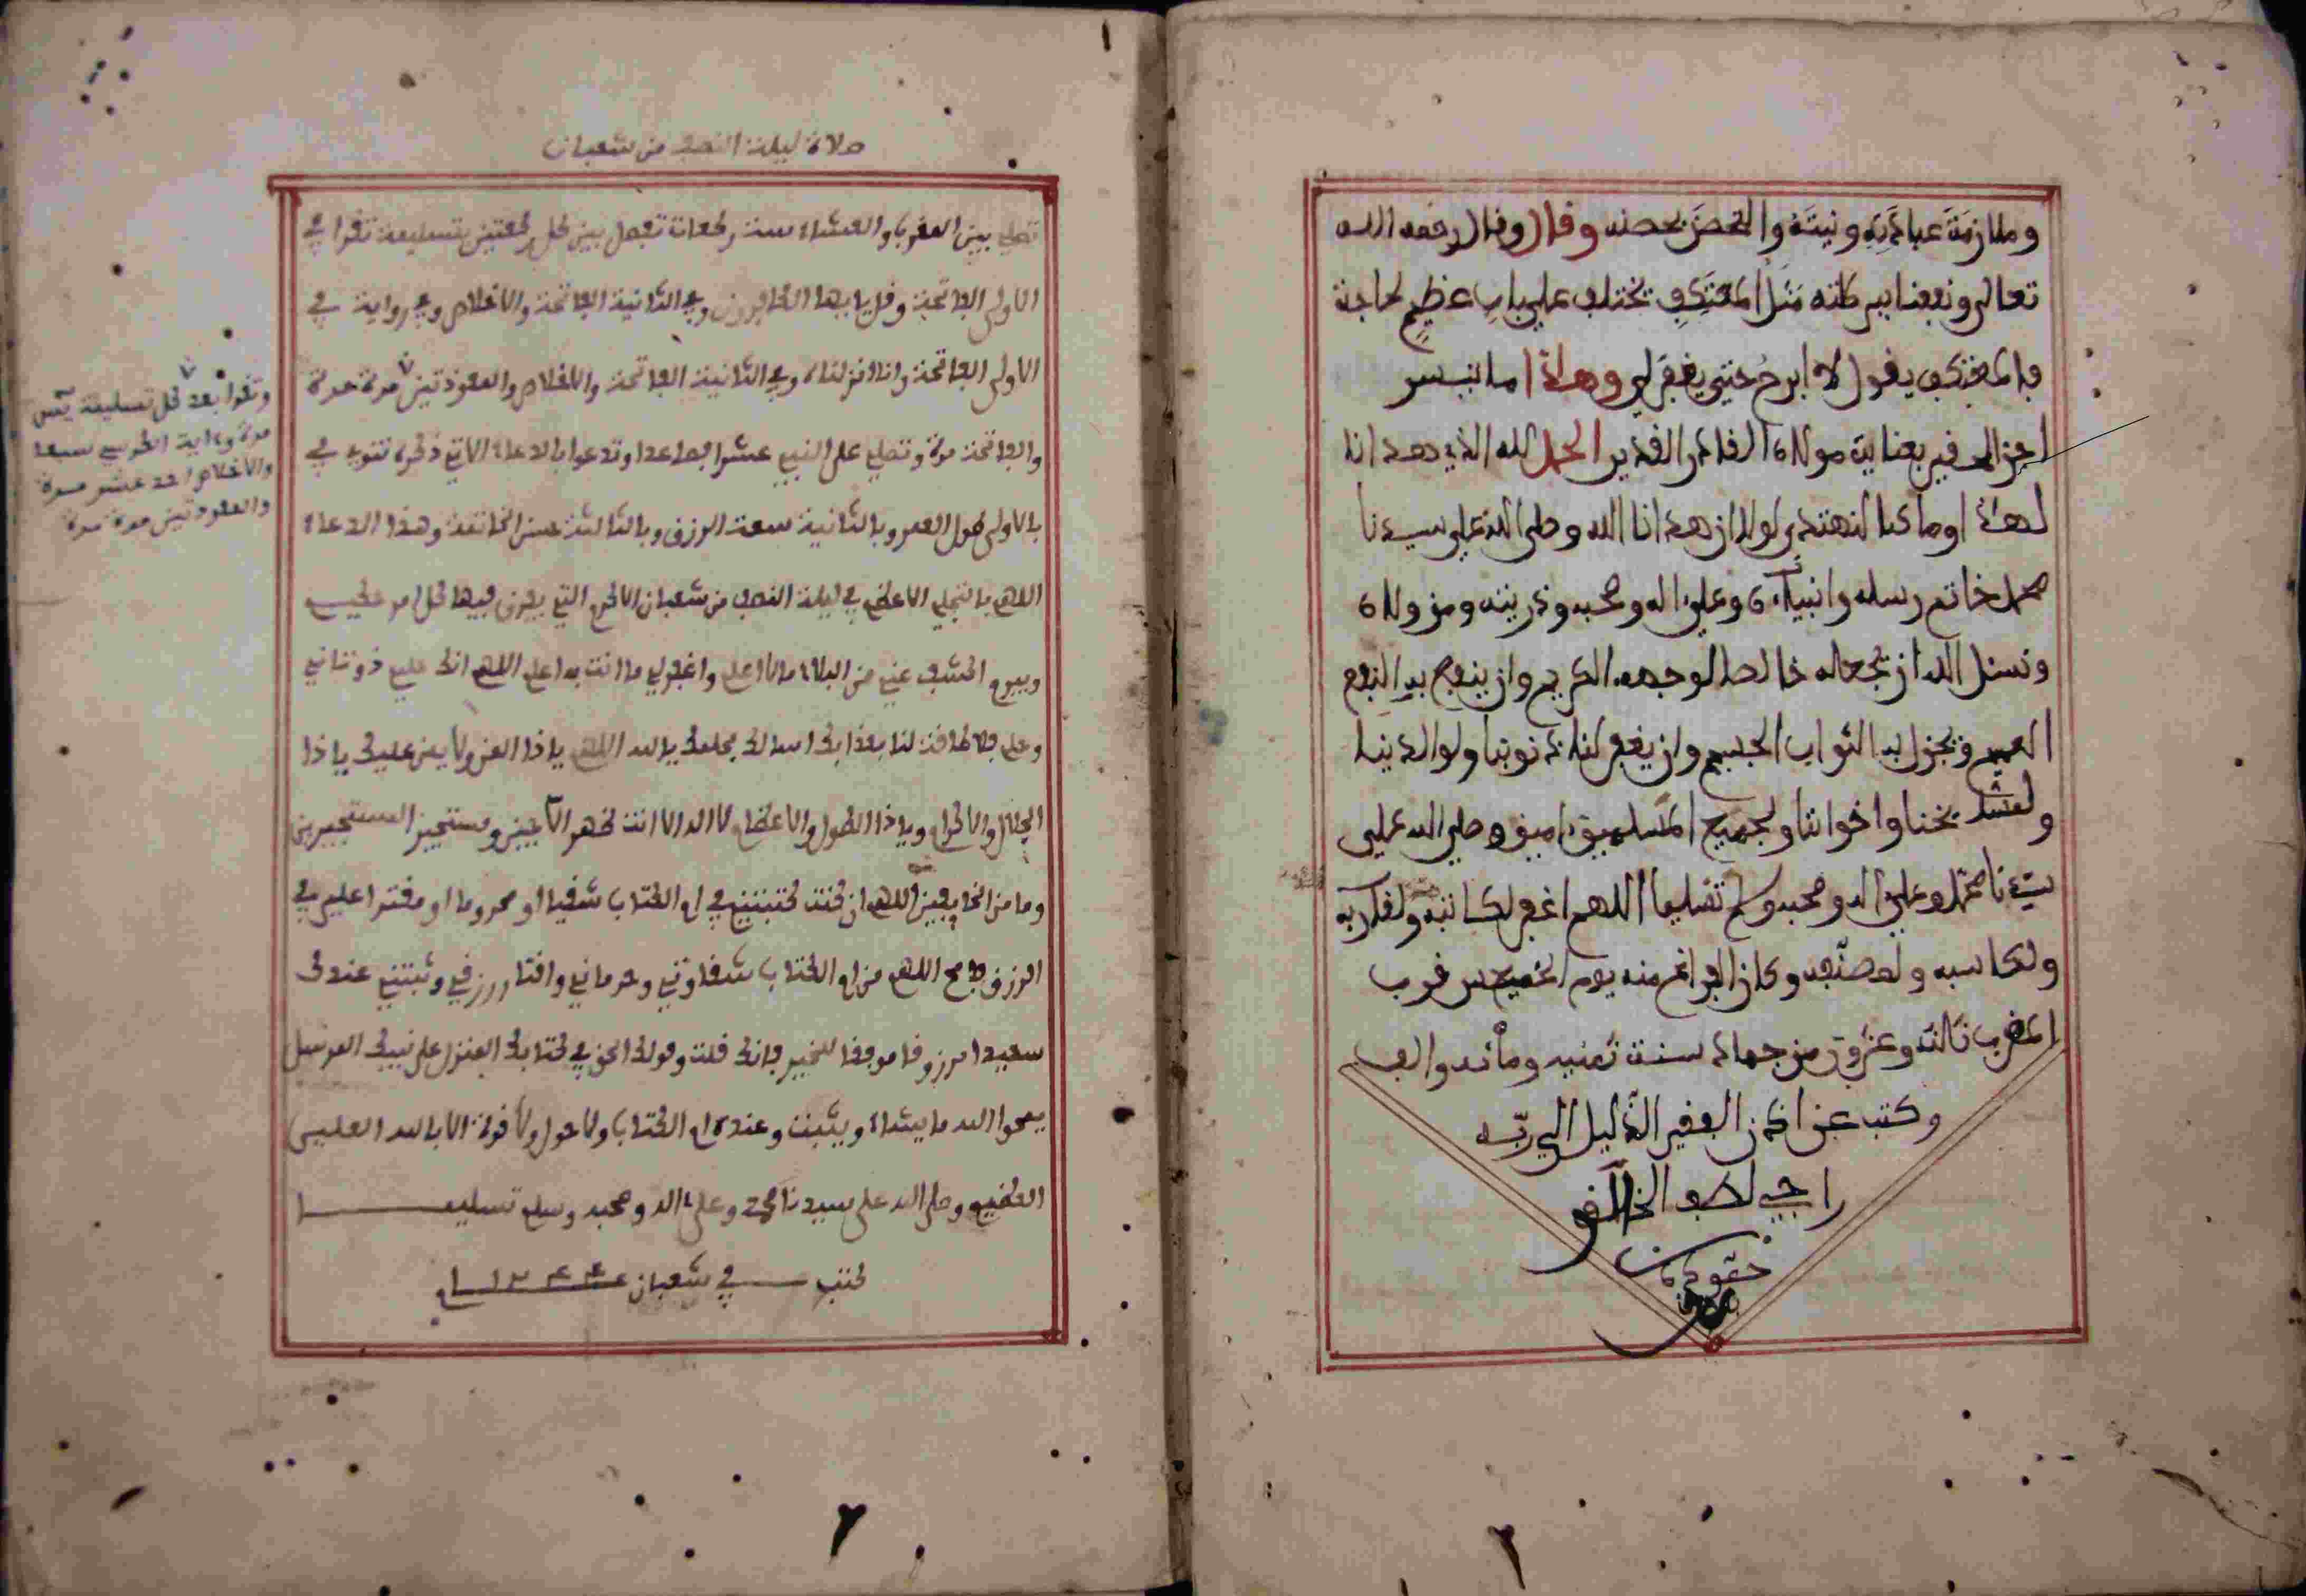 وملازمة عبادته ونيته والتحصن بحصنه وقال وقال رحمه الله
تعالى ونفعنا ببركته مثل المعتكف تختلف على باب عظيم لحاجة
فالمعتكف يقول لا ابرح حتى يغفر لي وهذا ما تيسر
العقير بعناية مولاه القادر القدير الحمد لله الذي هدانا
لهذا وما كنا لنهتدي لولا ان هدانا الله وصلى الله على سيدنا
محمد خاتم رسله وانبياءه وعلى اله وصحبه وذريته ومن ولاه
ونسئل الله ان يجعله خالصا لوجهه الكريم وان ينفع به النفع
العميم ويجزل به الثواب الجسيم وان يغفر لنا ذنوبنا ولوالدينا
ولمشايخنا واخواننا ولجميع المسلمين امين وصلى الله على
سيدنا محمد وعلى اله وصحبه وسلم تسليما اللهم اغفر لكاتبه ولقاريه
ولكاسبه ولمصنفه وكان الفراغ منه يوم الخميس قرب
المغرب من جماد سنة ومائة والف
وكتب عن اذن الفقير الذليل الى ربه
راجي لطف الخلاق
١
صلاة ليلة النصف من شعبان
تصلي بين المغرب والعشاء ست ركعات تفصل بين كل ركعتين بتسليمة تقرا في
الاولى الفاتحة وقل يا ايها الكافرون وفي الثانية الفاتحة والاخلاص وفي رواية في
الاولى الفاتحة وانا انزلناه وفي الثانية الفاتحة والاخلاص والمعوذتين مرة مرة
والفاتحة مرة وتصلي على النبي عشرا فصاعدا وتدعوا بالدعاء الاتي ذكره تنوي في
بالاولى طول العمر وبالثانية سعة الرزق وبالثالثة حسن الخاتمة وهذا الدعاء
اللهم بالتجلي الاعظم في ليلة النصف من شعبان الاكرم التي يفرق فيها كل امر حكيم
ويبرم اكشف عني من البلاء ما لا اعلم واغفر لي ما انت به اعلم اللهم انك حليم ذو
وعلم لا طاقة لنا بعذابك اسالك بحلمك يا الله اللهم يا ذا المن ولا يمن عليك يا ذا
الجلال والاكرام ويا ذا الطول والانعام لا اله الا انت ظهر اللاجين ومستجير المستجيرين
ومامن الخايفين اللهم ان كنت كتبتني في ام الكتاب شقيا او محروما او مقترا علي في
الرزق فامح اللهم من ام الكتاب شقاوتي وحرماني واقتار رزقي وثبتني عندك
سعيدا مرزوقا موفقا للخير فانك قلت وقولك الحق في كتابك المنزل على نبيك المرسل
يمحوا الله ما يشاء ويثبت وعنده ام الكتاب ولا حول ولا قوة الا بالله العلي
العظيم وصلى الله على سيدنا محمد وعلى اله وصحبه وسلم تسليما
كتب في شعبان ١٢٤٤
وتقرا بعد كل تسليمة يس
مرة وءاية الكرسي سبعا
والاخلاص احد عشر مرة
والمعوذتين مرة مرة
٢